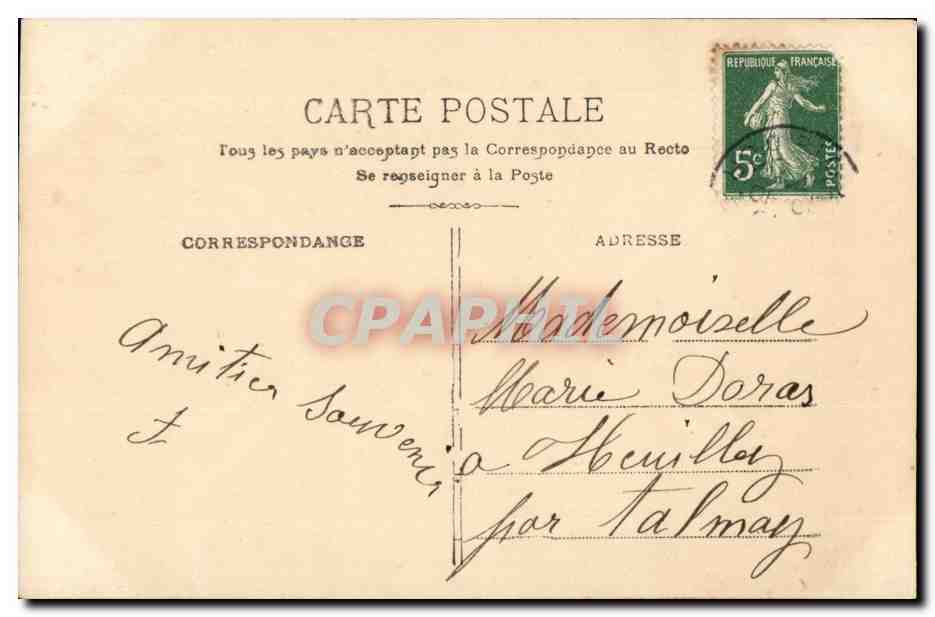 REPUBLIQUE FRANÇAISE
5c
POSTES
CARTE POSTALE
Tous les pays n'acceptant pas la Correspondance au Recto
Se renseigner à la Poste
CORRESPONDANCE
ADRESSE
CPAPHIL
Amitiés Souvenir
Mademoiselle
Marie Doras
a Heuilley
par Talmay